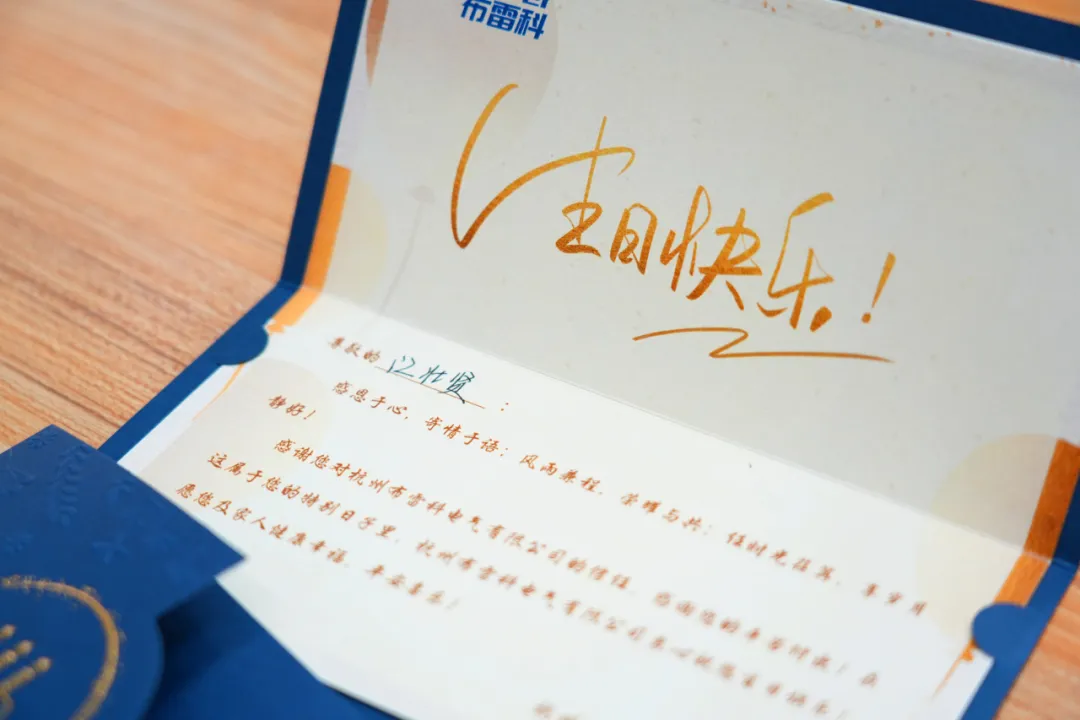 布雷科
生日快乐！
尊敬的 江壮贤：
感恩于心，寄情于语；风雨兼程，荣耀与共；任时光荏苒，享岁月
静好！
感谢您对杭州布雷科电气有限公司的信任，感谢您的辛苦付出！在
这属于您的特别日子里，杭州布雷科电气有限公司衷心祝您生日快乐！
愿您及家人健康幸福、平安喜乐！